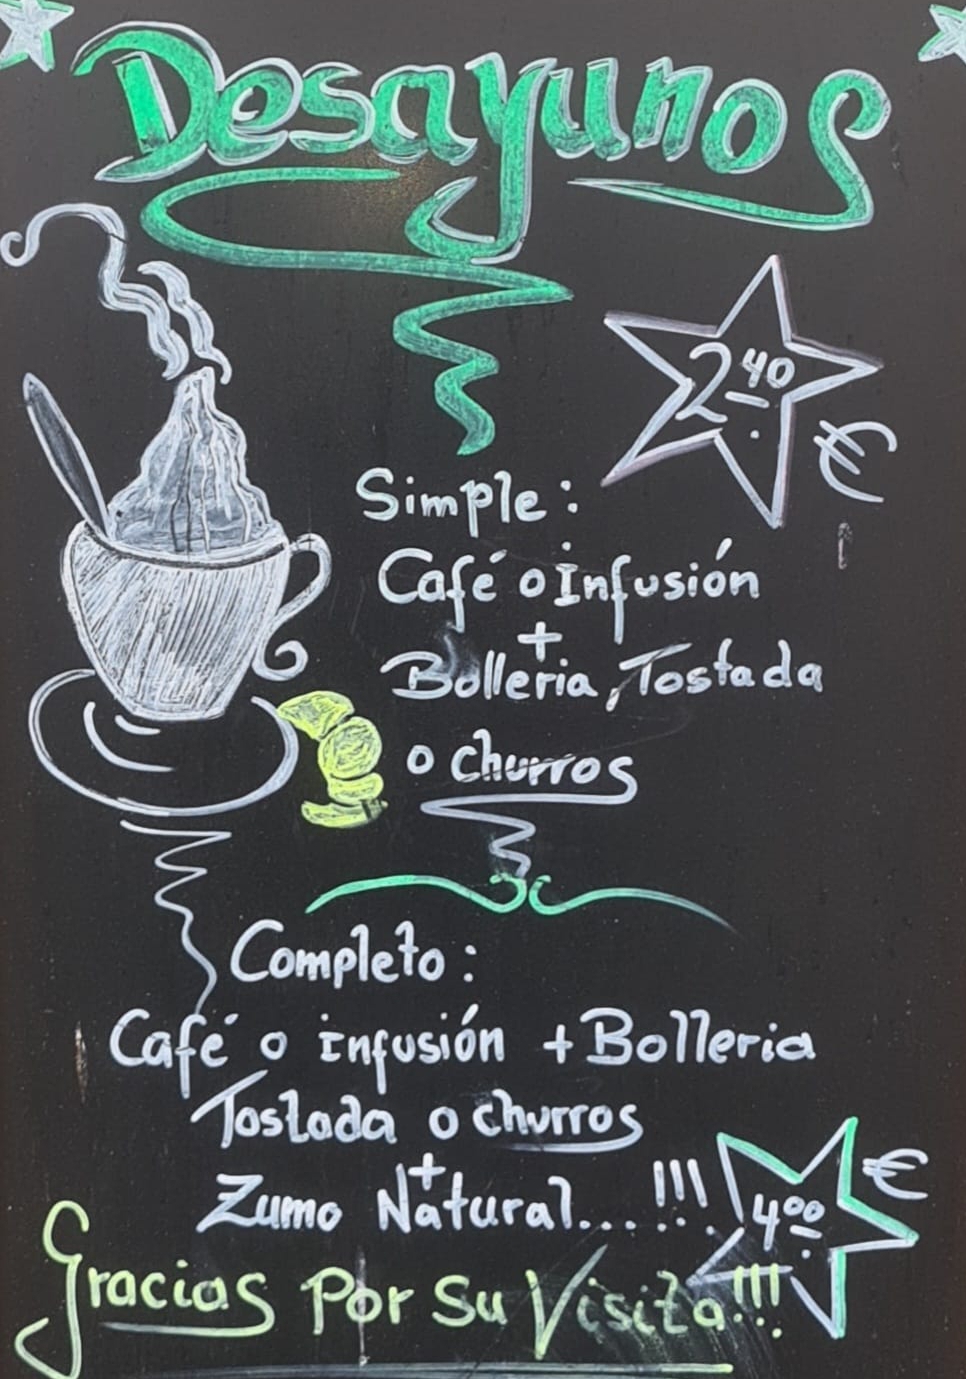 Desayunos
2 40 €
Simple:
Café o Infusión
+
Bolleria, Tostada
o churros
Completo:
Café o infusión + Bolleria
Tostada o churros
+
Zumo Natural...!!!
4 00 €
Gracias Por Su Visita!!!